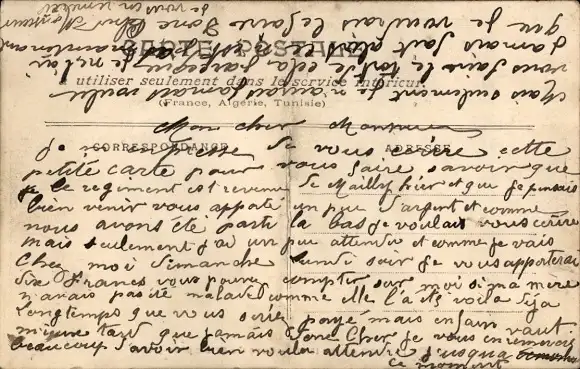 CARTE POSTALE
à utiliser seulement dans le service intérieur.
(France, Algérie, Tunisie)
CORRESPONDANCE
ADRESSE
Mon cher Monsieur
Je m'empresse de vous écrire cette
petite carte pour vous faire savoir que
le regiment est revenu de Mailly hier et que je pensais
bien venir vous apporté un peu d'argent et comme
nous avons été parti la bas je voulais vous écrire
mais seulement j'ai un peu attendu et comme je vais
chez moi dimanche lundi soir je vous apporterai
dix Francs vous pouvez compter sur moi si ma mere
n'avais pas été malade comme elle l'a été voila deja
longtemps que vous serie payé mais enfin vaut
mieux tard que jamais donc cher je vous en remercie
beaucoup d'avoir bien voulu attendre j'usqua
ce moment
Mais seulement je n'aurais jamais voulu
vous faire le tort de cela parceque je n'ai
jamais fait et ce n'est pas maintenant
que je voudrais le faire Donc cher Monsieur
je vous en remercie